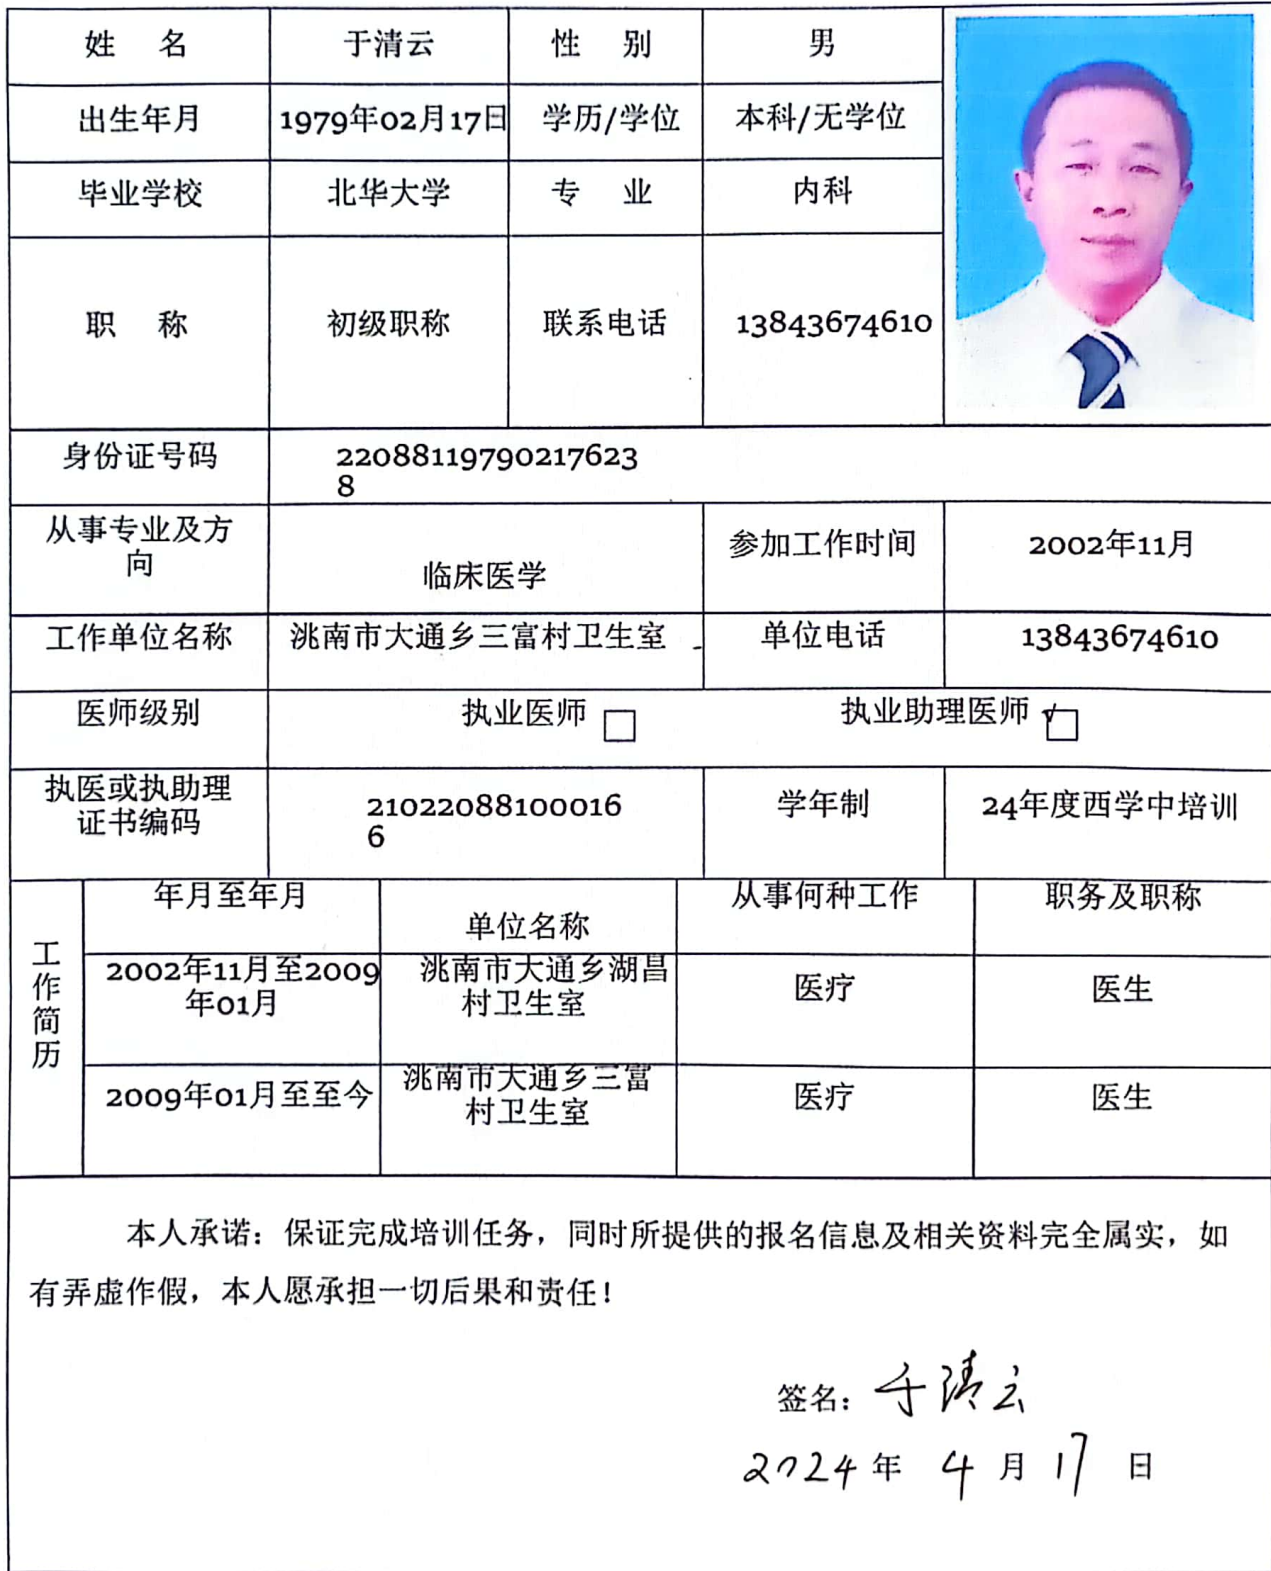 姓 名 于清云 性 别 男
出生年月 1979年02月17日 学历/学位 本科/无学位
毕业学校 北华大学 专 业 内科
职 称 初级职称 联系电话 13843674610
身份证号码 22088119790217623
8
从事专业及方
向
临床医学
参加工作时间 2002年11月
工作单位名称 洮南市大通乡三富村卫生室 单位电话 13843674610
医师级别 执业医师 □ 执业助理医师 ☑
执医或执助理
证书编码
21022088100016
6
学年制 24年度西学中培训
工作简历
年月至年月 单位名称 从事何种工作 职务及职称
2002年11月至2009
年01月
洮南市大通乡湖昌
村卫生室
医疗 医生
2009年01月至至今
洮南市大通乡三富
村卫生室
医疗 医生
本人承诺：保证完成培训任务，同时所提供的报名信息及相关资料完全属实，如
有弄虚作假，本人愿承担一切后果和责任！
签名：于清云
2024年 4月 17日